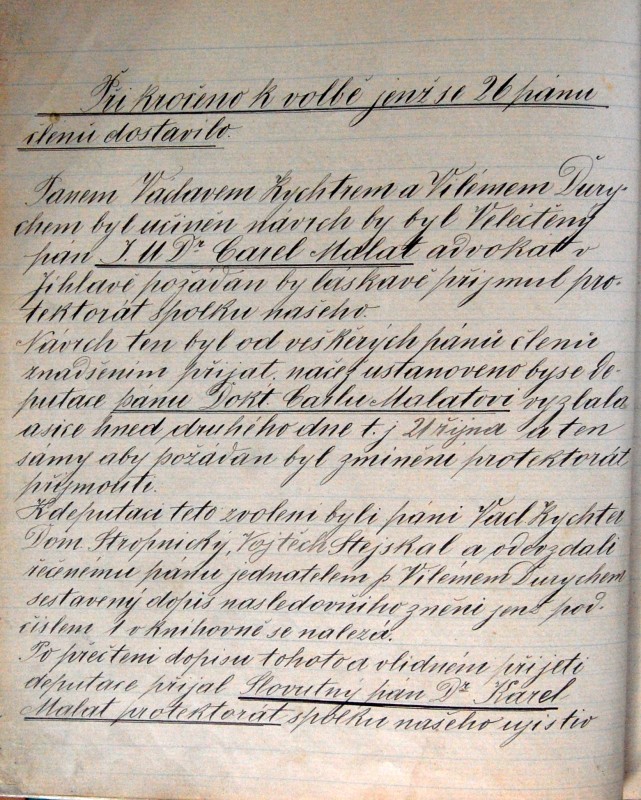 Při kročeno k volbě jenž se 26 pánu
členů dostavilo.
Panem Václavem Rychtrem a Vilémem Ďury-
chem byl učiněn návrch by byl Veléctěný
pán J. U Dr. Carel Malat advokat v
Jihlavě požádan by láskavě přijmul pro-
tektorát spolku našeho.
Návrch ten byl od veškerých pánů členů
znadšením přijat, načež ustanoveno byse de-
putace pánu Dokt. Carlu Malatovi vyzlala
asice hned druhého dne t. j 21 října a ten
samy aby požádan byl zmíněni protektorát
přijmouti.
K deputaci teto zvoleni byli páni Vacl Rychter
Dom. Stropnický, Vojtěch Stejskal a odevzdali
řečenému pánu jednatelem p Vilémem Ďurychem
sestavený dopis nasledovního zněni jenž pod-
číslem 1 v knihovně se nalezá.
Po přečteni dopisu tohoto a vlidném přijeti
deputace přijal Slovutný pán Dr. Karel
Malat protektorát spolku našeho ujistiv